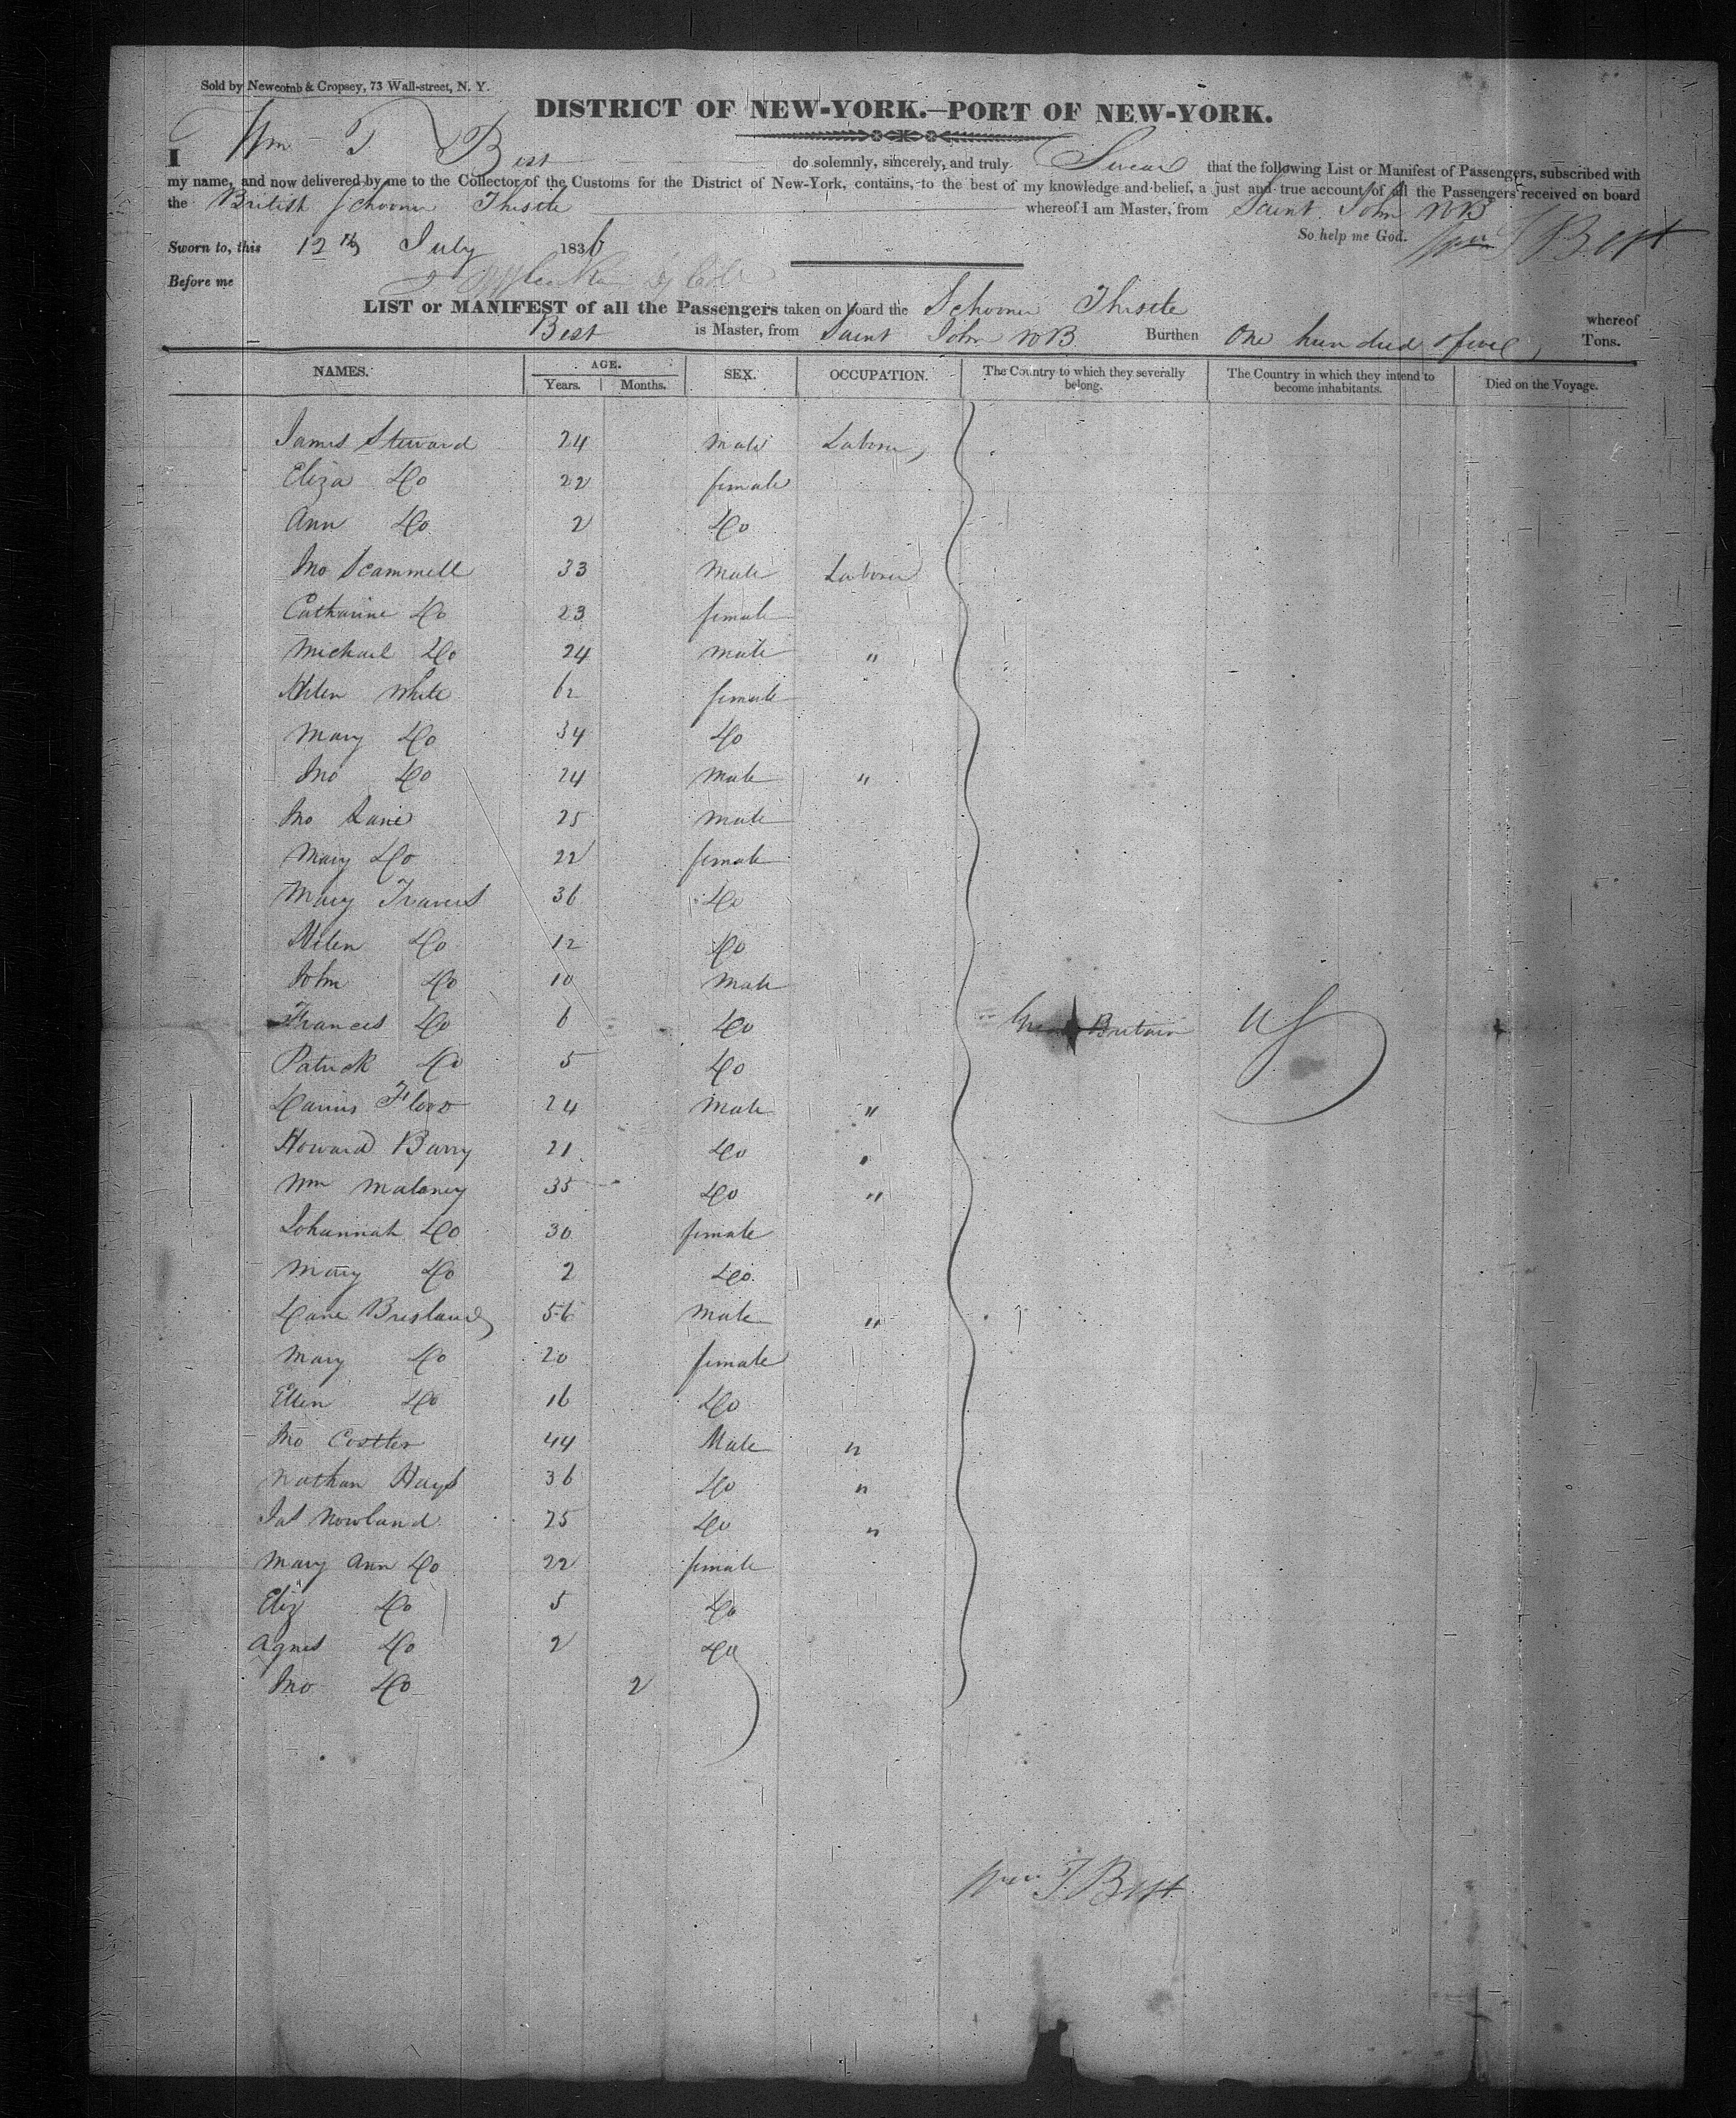 Sold by Newcomb & Cropsey, 73 Wall-street, N. Y.
DISTRICT OF NEW-YORK.—PORT OF NEW-YORK.
I Wm T Best do solemnly, sincerely, and truly Swear that the following List or Manifest of Passengers, subscribed with
my name, and now delivered by me to the Collector of the Customs for the District of New-York, contains, to the best of my knowledge and belief, a just and true account of all the Passengers received on board
the British Schooner Thistle whereof I am Master, from Saint John NB
So help me God. Wm T Best
Sworn to, this 12th July 1836
Before me
LIST or MANIFEST of all the Passengers taken on board the Schooner Thistle whereof
Best is Master, from Saint John NB Burthen One hundred & five Tons.
NAMES. AGE. Years. Months. SEX. OCCUPATION. The Country to which they severally belong. The Country in which they intend to become inhabitants. Died on the Voyage.
James Steward 24 male Laborer
Eliza Do 22 female
Ann Do 2 Do
Jno Scammell 33 Male Laborer
Catharine Do 23 female
Michael Do 24 male "
Hellen White 62 female
Mary Do 34 Do
Jno Do 24 male "
Jno Lane 25 male
Mary Do 22 female
Mary Travers 36 Do
Helen Do 12 Do
John Do 10 Male
Frances Do 6 Do Great Britain US
Patrick Do 5 Do
Flood 24 Male "
Howard Barry 21 Do "
Wm Maloney 35 Do "
Johannah Do 30 female
Mary Do 2 Do
Brisland 56 Male "
Mary Do 20 female
Ellen Do 16 Do
Jno Costler 44 Male "
Nathan Hays 36 Do "
Jas Nowland 25 Do "
Mary Ann Do 22 female
Eliz Do 5 Do
Agnes Do 2 Do
Jno Do 2
Wm T Best